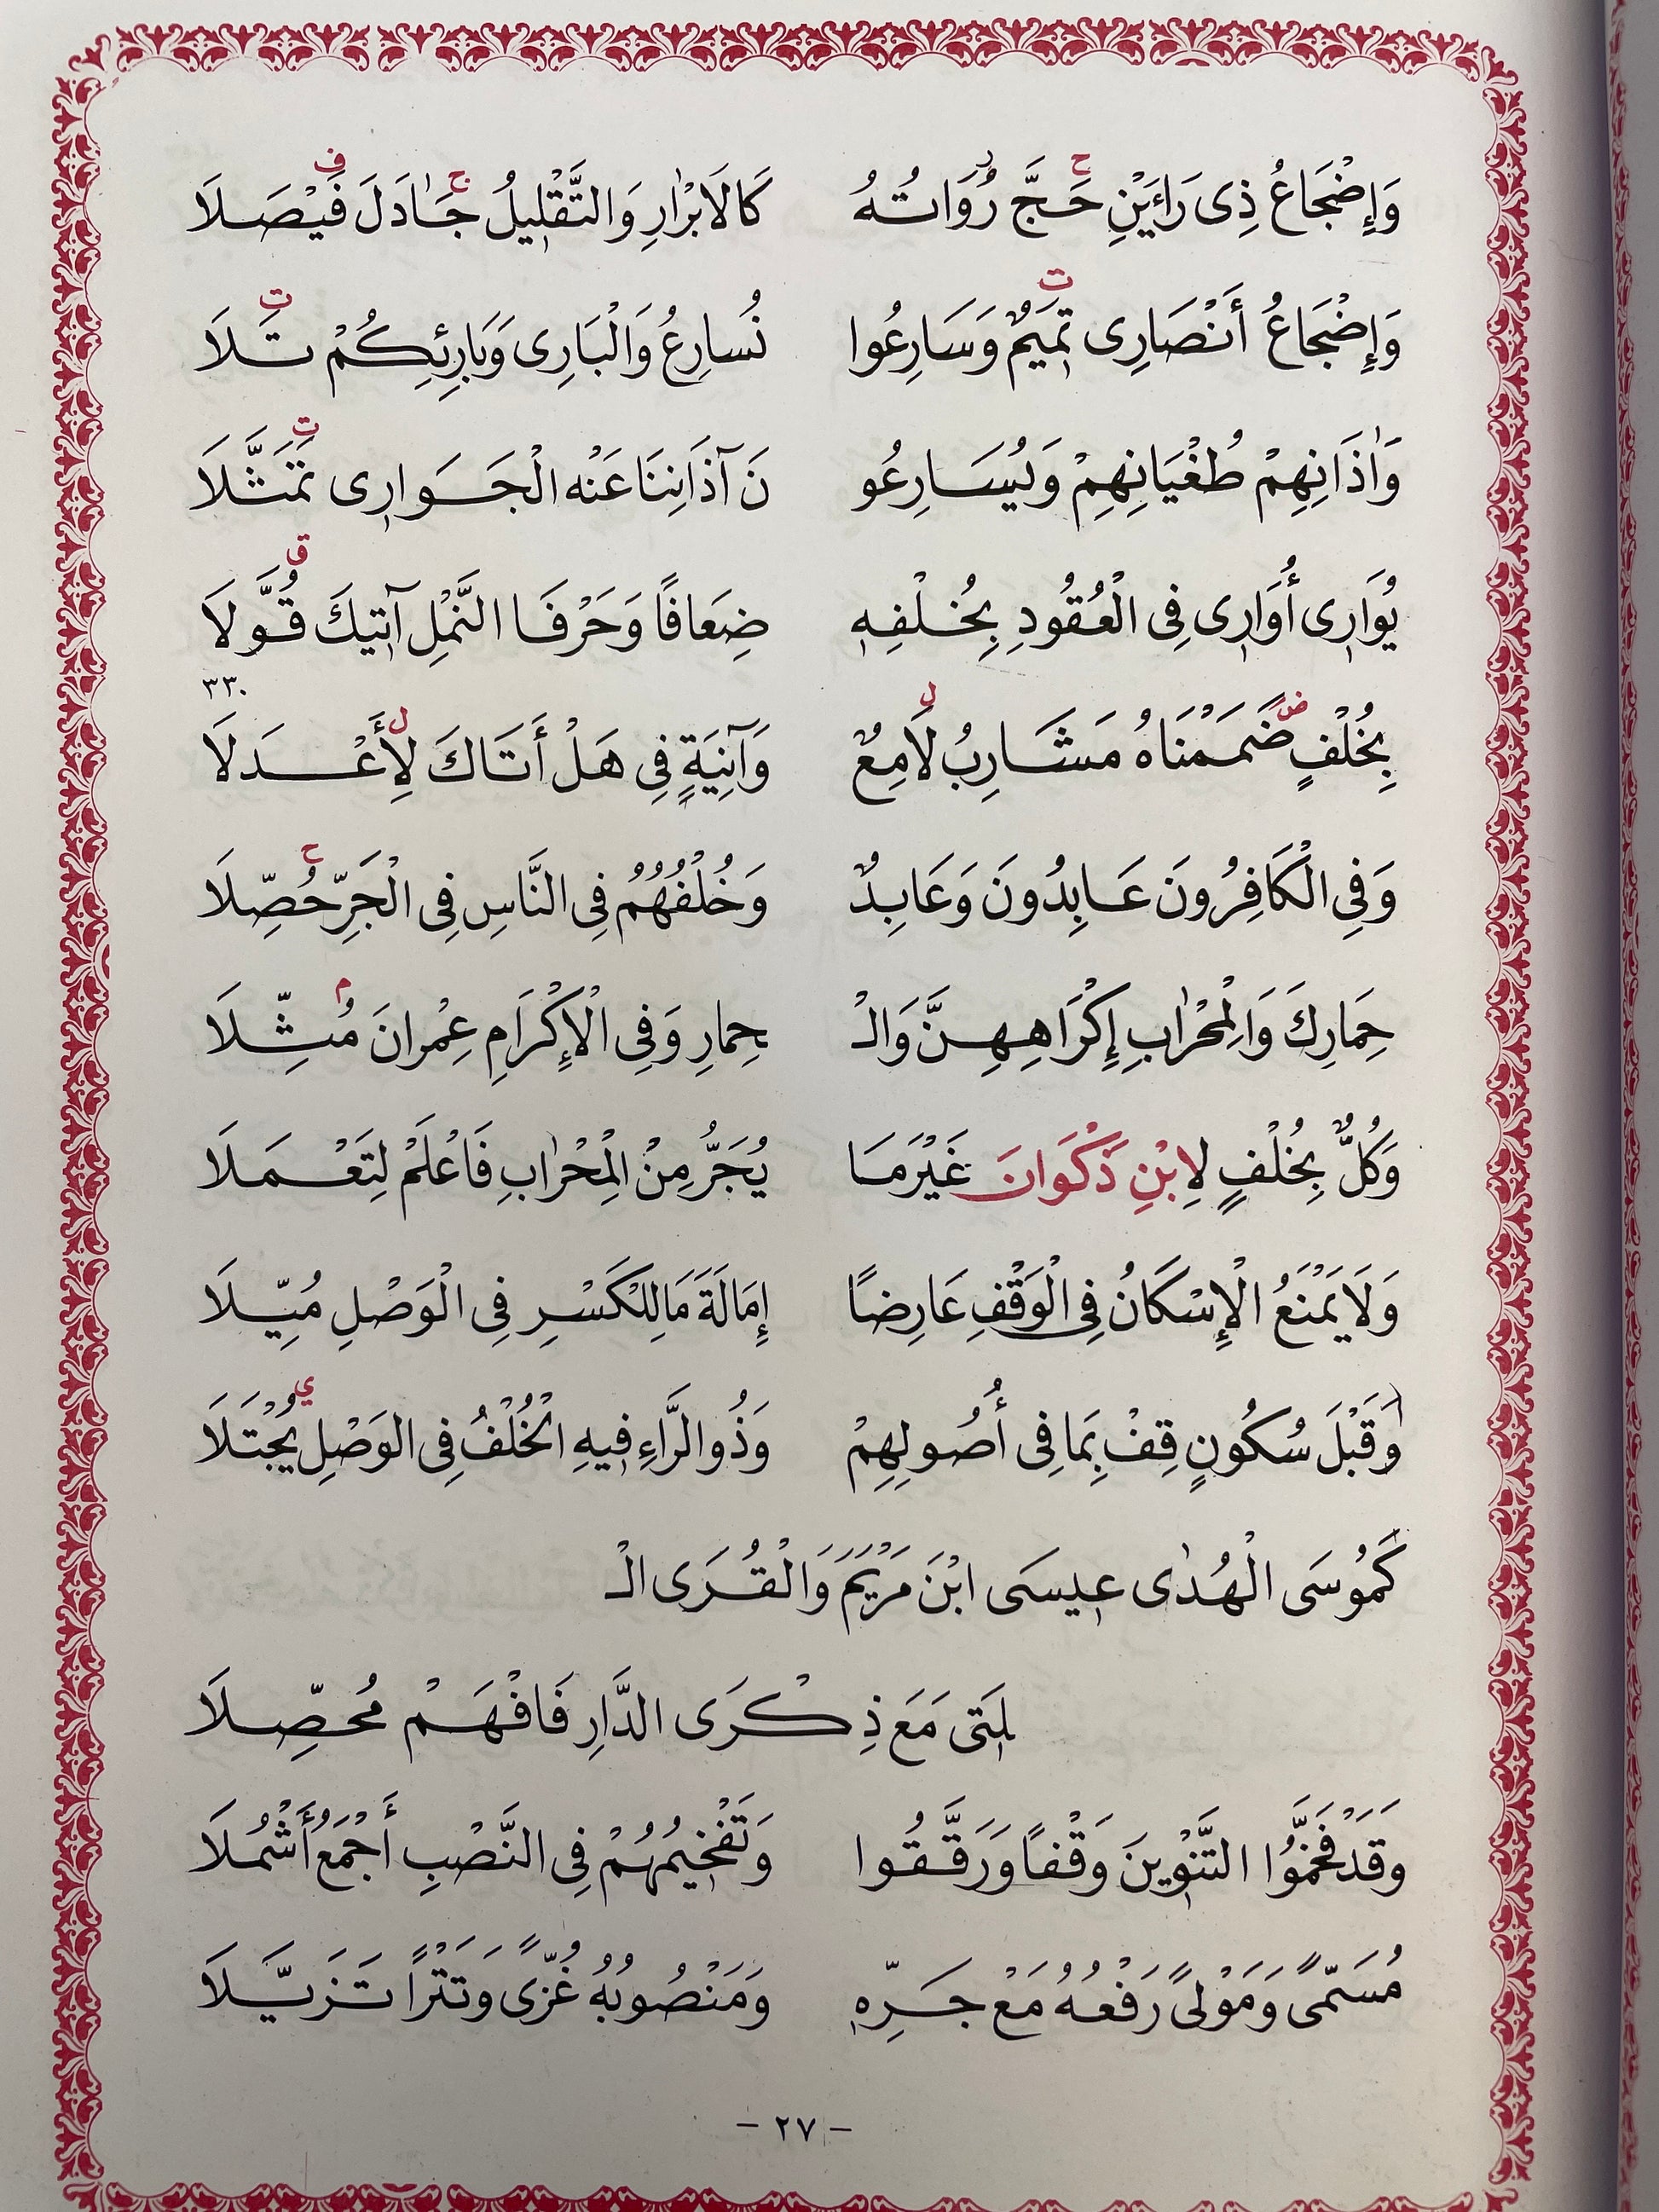 وَإِضْجَاعُ ذِى رَاءَيْنِ حَجَّ رُوَاتُهُ كَالَابْرَارِ وَالتَّقْلِيلُ جَادَلَ فَيْصَلَا
وَإِضْجَاعُ أَنْصَارِى تَمِيمٌ وَسَارِعُوا نُسَارِعُ وَالْبَارِى وَبَارِئِكُمْ تَلَا
وَآذَانِهِمْ طُغْيَانِهِمْ وَيُسَارِعُو نَ آذَانِنَا عَنْهُ الْجَوَارِى تَمَثَّلَا
يُوَارِى أُوَارِى فِى الْعُقُودِ بِخُلْفِهِ ضِعَافًا وَحَرْفَا النَّمْلِ آتِيكَ قُوَّلَا
٣٣٠
بِخُلْفٍ ضَمَمْنَاهُ مَشَارِبُ لَامِعٌ وَآنِيَةٍ فِى هَلْ أَتَاكَ لِأَعْدَلَا
وَفِى الْكَافِرُونَ عَابِدُونَ وَعَابِدٌ وَخُلْفُهُمُ فِى النَّاسِ فِى الْجَرِّ حُصِّلَا
حِمَارِكَ وَالْمِحْرَابِ إِكْرَاهِهِنَّ وَالْـ حِمَارِ وَفِى الْإِكْرَامِ عِمْرَانَ مُثِّلَا
وَكُلٌّ بِخُلْفٍ لِابْنِ ذَكْوَانَ غَيْرَ مَا يُجَرُّ مِنَ الْمِحْرَابِ فَاعْلَمْ لِتَعْمَلَا
وَلَا يَمْنَعُ الْإِسْكَانُ فِى الْوَقْفِ عَارِضًا إِمَالَةَ مَا لِلْكَسْرِ فِى الْوَصْلِ مُيِّلَا
وَقَبْلَ سُكُونٍ قِفْ بِمَا فِى أُصُولِهِمْ وَذُو الرَّاءِ فِيهِ الْخُلْفُ فِى الْوَصْلِ يُجْتَلَا
كَمُوسَى الْهُدٰى عِيسَى ابْنَ مَرْيَمَ وَالْقُرَى الْـ
لَتِى مَعَ ذِكْرَى الدَّارِ فَافْهَمْ مُحَصِّلَا
وَقَدْ فَخَّمُوا التَّنْوِينَ وَقْفًا وَرَقَّقُوا وَتَفْخِيمُهُمْ فِى النَّصْبِ أَجْمَعُ أَشْمُلَا
مُسَمًّى وَمَوْلًى رَفْعُهُ مَعْ جَرِّهِ وَمَنْصُوبُهُ غُزًّى وَتَتْرًا تَزَيَّلَا
- ٢٧ -